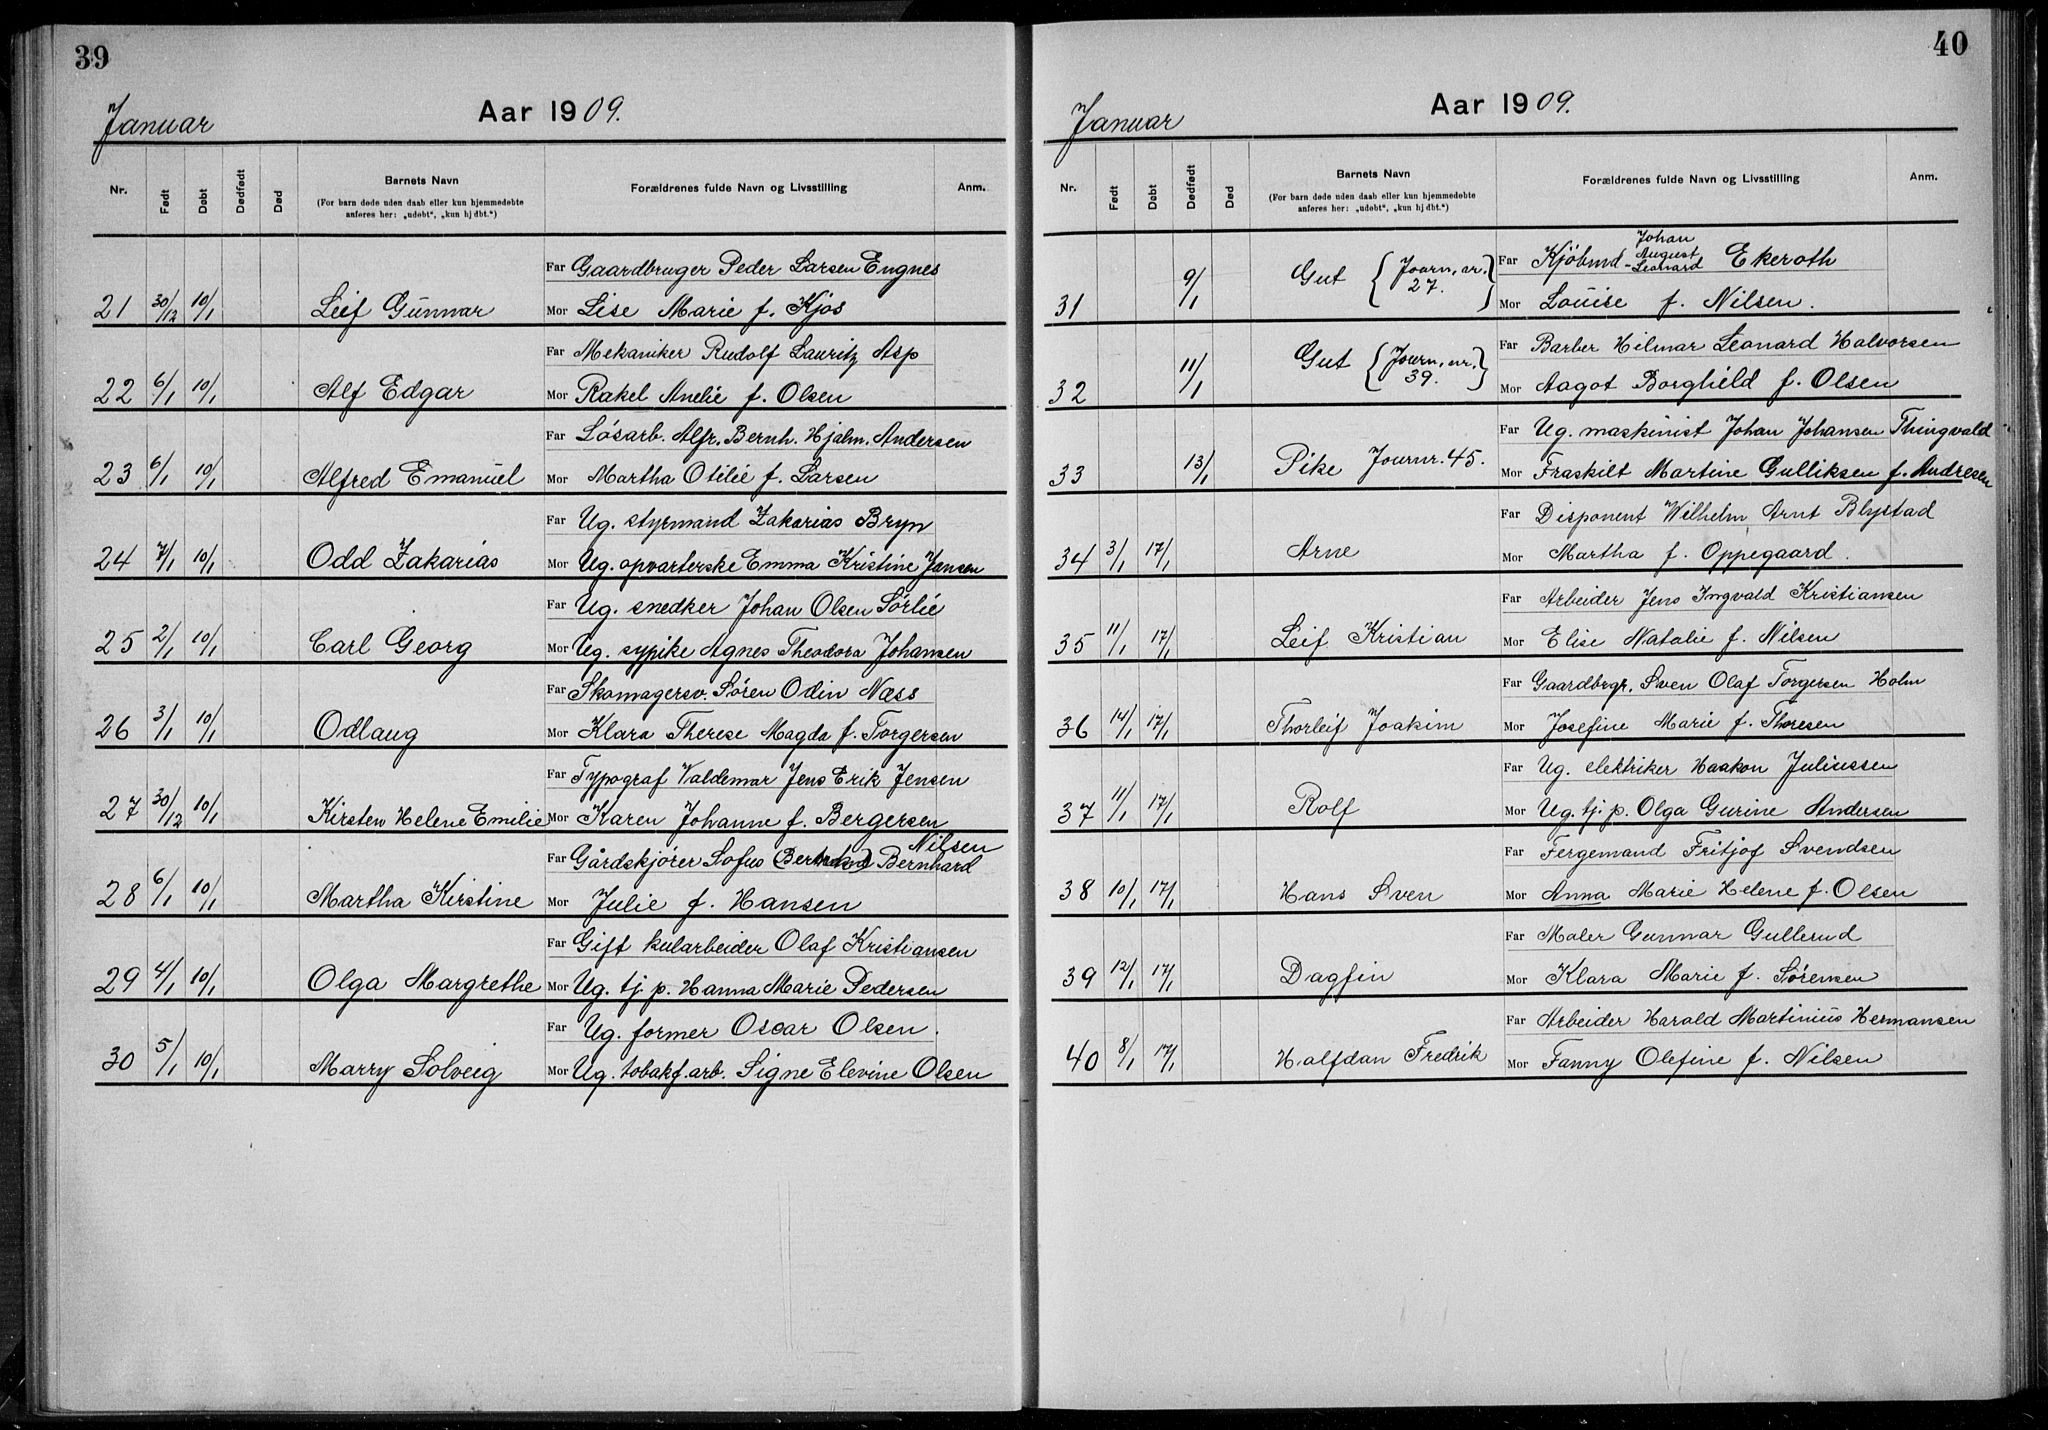 39
Januar Aar 1909.
Nr. Født Døbt Dødfødt Død Barnets Navn Forældrenes fulde Navn og Livsstilling Anm.
(For barn døde uden daab eller kun hjemmedøbte
anføres her: „udøbt", „kun hj dbt.")
Far Gaardbruger Peder Larsen Engnes
21 30/12 10/1 Leif Gunnar Mor Lise Marie f. Kjos
Far Mekaniker Rudolf Lauritz Asp
22 6/1 10/1 Alf Edgar Mor Rakel Anelie f. Olsen
Far Løsarb. Alfr. Bernh. Hjalm. Andersen
23 6/1 10/1 Alfred Emanuel Mor Martha Otilie f. Larsen
Far Ug. styrmand Zakarias Bryn
24 7/1 10/1 Odd Zakarias Mor Ug. opvarterske Emma Kristine Jansen
Far Ug. snedker Johan Olsen Sørlie
25 2/1 10/1 Carl Georg Mor Ug. sypike Agnes Theodora Johansen
Far Skomagersv. Søren Odin Næss
26 3/1 10/1 Odlaug Mor Klara Therese Magda f. Torgersen
Far Typograf Valdemar Jens Erik Jensen
27 30/12 10/1 Kirsten Helene Emilie Mor Karen Johanne f. Bergersen
Nilsen
Far Gårdskjører Sofus Bernhard
28 6/1 10/1 Martha Kirstine Mor Julie f. Hansen
Far Gift kularbeider Olaf Kristiansen
29 4/1 10/1 Olga Margrethe Mor Ug. tj. p. Hanna Marie Pedersen
Far Ug. former Oscar Olsen.
30 5/1 10/1 Marry Solveig Mor Ug. tobakf. arb. Signe Elevine Olsen
40
Januar Aar 1909.
Nr. Født Døbt Dødfødt Død Barnets Navn Forældrenes fulde Navn og Livsstilling Anm.
(For barn døde uden daab eller kun hjemmedøbte
anføres her: „udøbt", „kun hj dbt.")
Johan
August
Far Kjøbmd - Leonard Ekeroth
31 9/1 Gut {Journ. nr. 27.} Mor Louise f. Nilsen.
Far Barber Hilmar Leonard Halvorsen
32 11/1 Gut {Journ. nr. 39.} Mor Aagot Borghild f. Olsen
Far Ug. maskinist Johan Johansen Thingvald
33 13/1 Pike Journr. 45. Mor Fraskilt Martine Gulliksen f. Andresen
Far Disponent Wilhelm Arnt Blystad
34 3/1 17/1 Arne Mor Martha f. Oppegaard.
Far Arbeider Jens Ingvald Kristiansen
35 11/1 17/1 Leif Kristian Mor Elise Natalie f. Nilsen
Far Gaardbrgr. Sven Olaf Torgersen Holm
36 14/1 17/1 Thorleif Joakim Mor Josefine Marie f. Thoresen
Far Ug. elektriker Haakon Juliussen
37 11/1 17/1 Rolf Mor Ug. tj. p. Olga Gurine Andersen
Far Fergemand Fritjof Svendsen
38 10/1 17/1 Hans Sven Mor Anna Marie Helene f. Olsen
Far Maler Gunnar Gullerud
39 12/1 17/1 Dagfin Mor Klara Marie f. Sørensen
Far Arbeider Harald Martinius Hermansen
40 8/1 17/1 Halfdan Fredrik Mor Fanny Olefine f. Nilsen